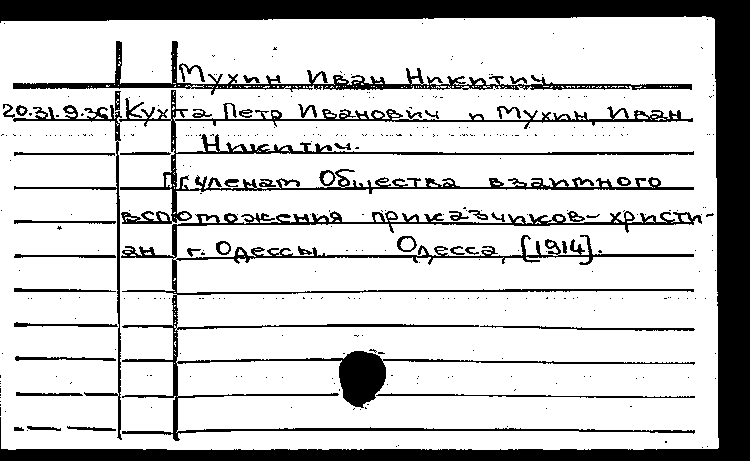 Мухин, Иван Никитич.
20.31.9.36 Кухта, Петр Иванович и Мухин, Иван
Никитич.
Общества взаимного
вспоможения приказчиков-христи-
ан г. Одессы. Одесса, [1914].